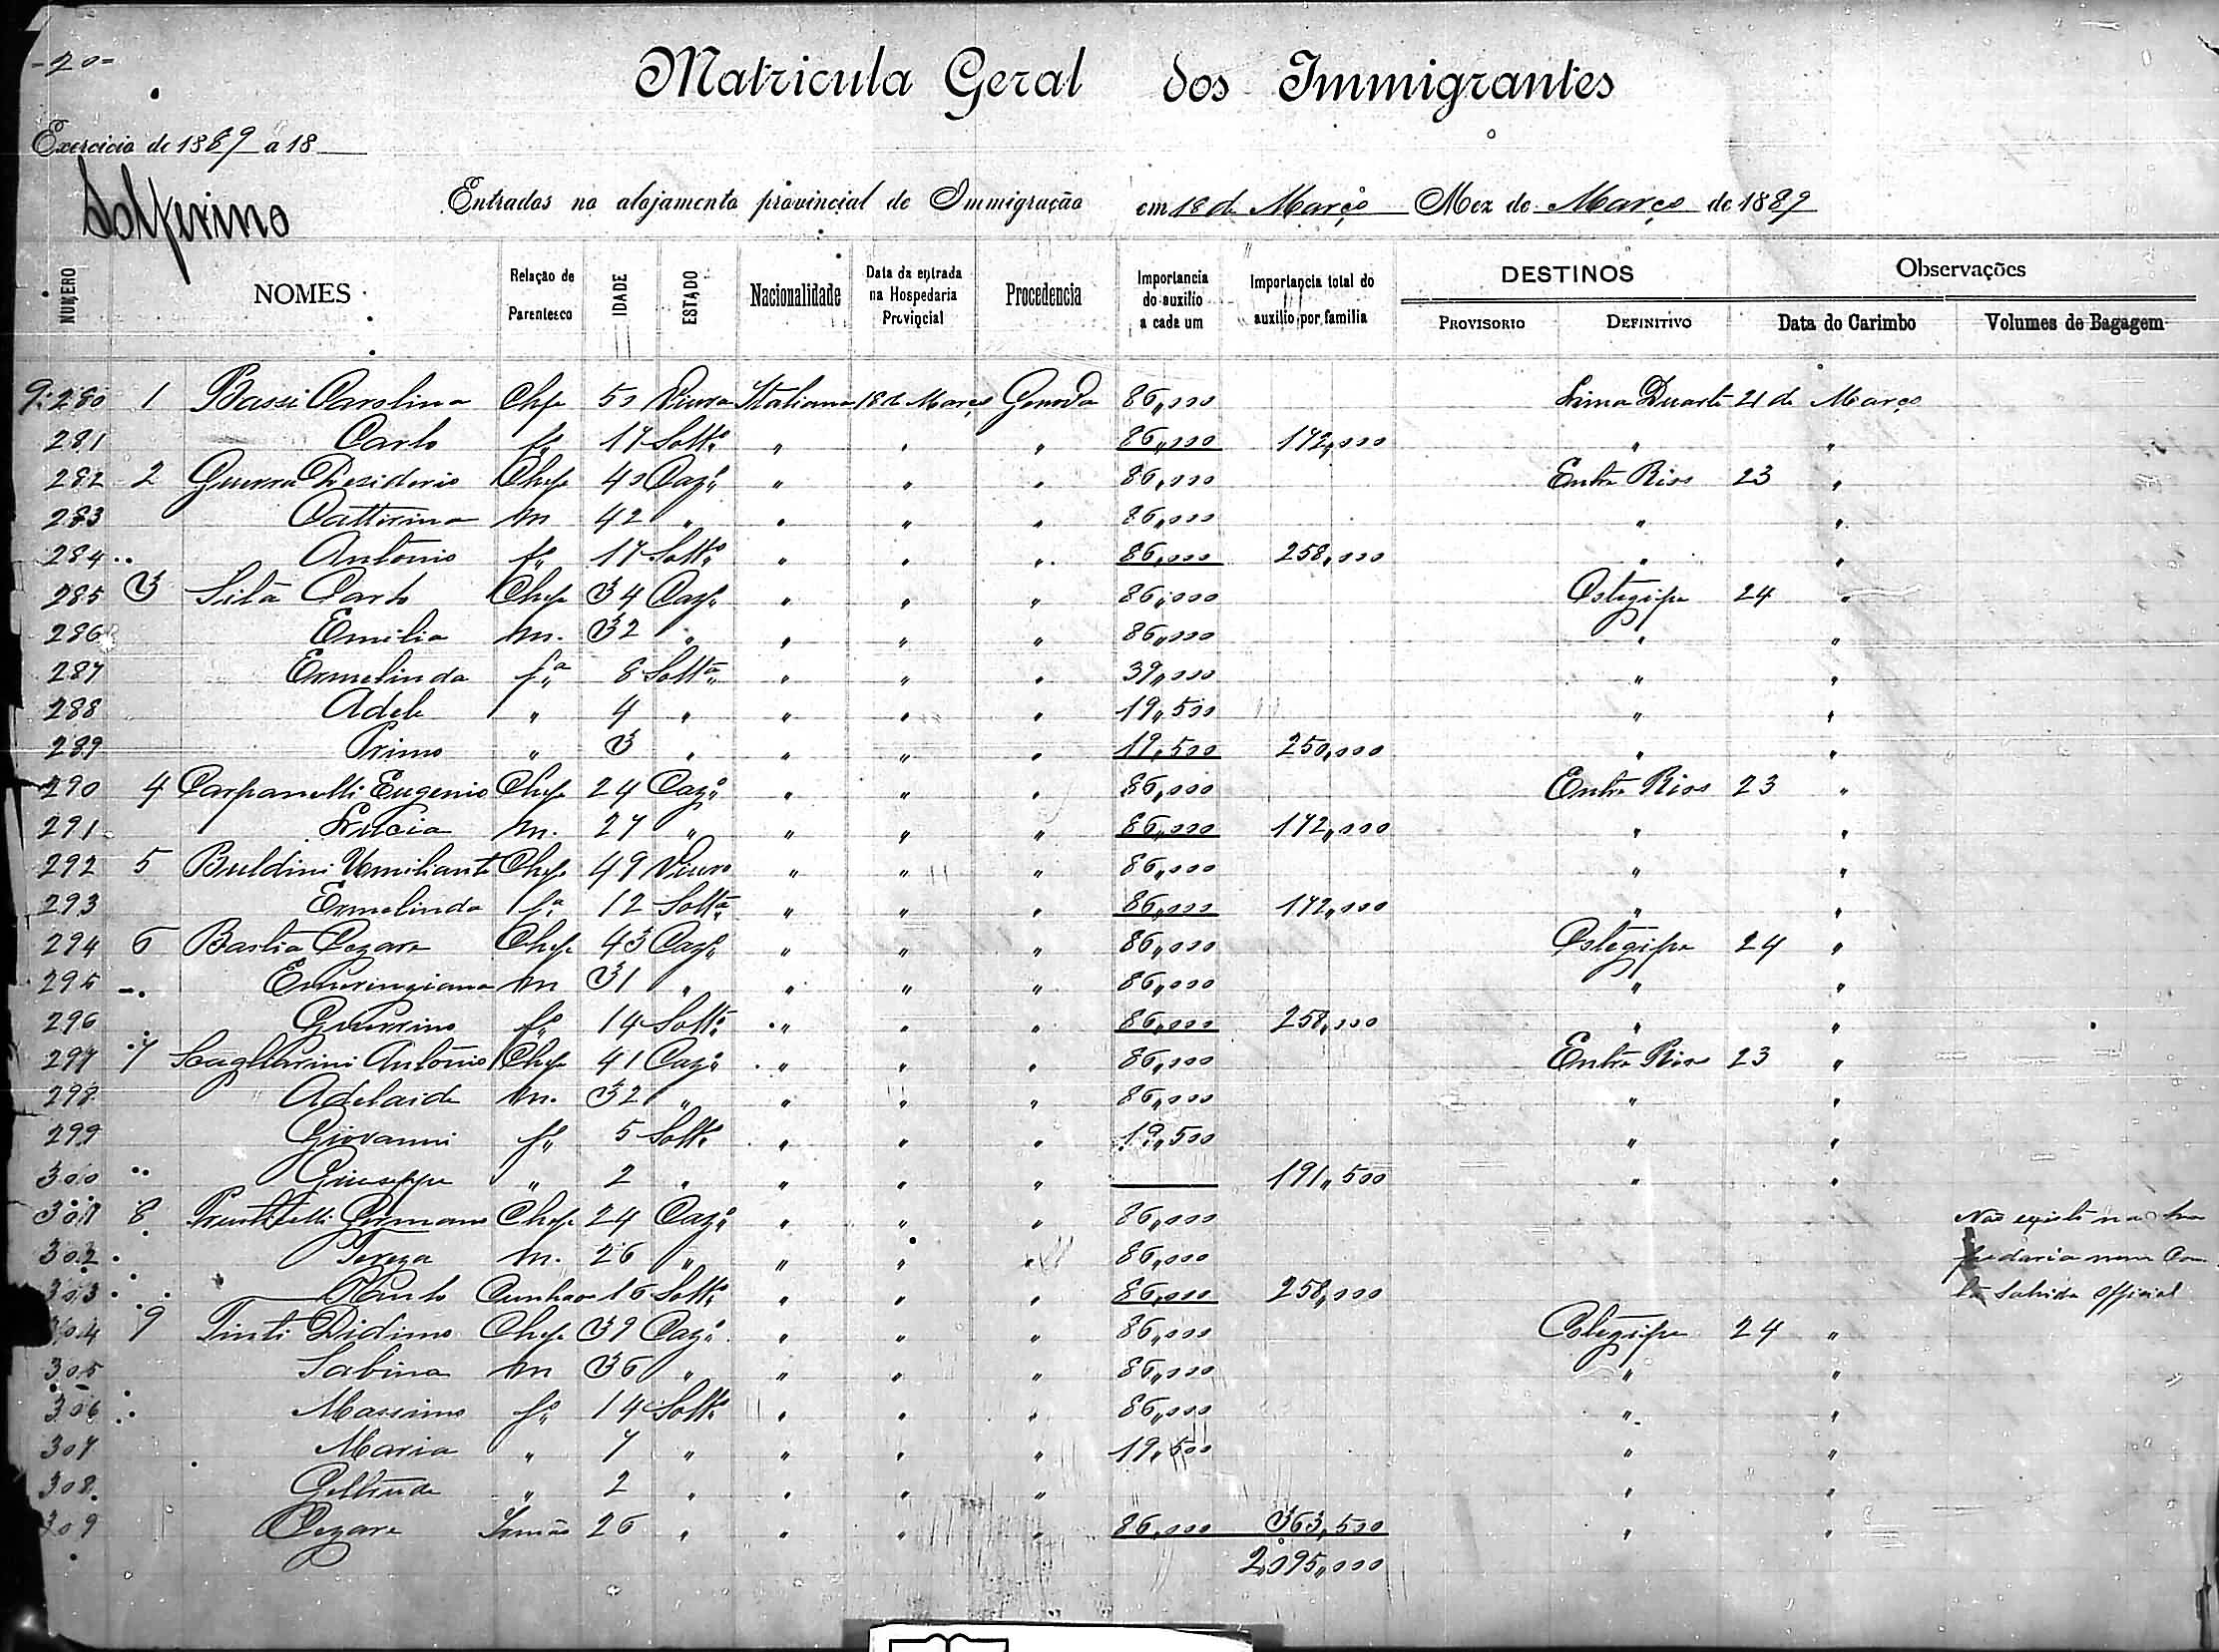 -20-
Matricula Geral dos Immigrantes
Exercicio de 1889 a 18
Solferino
Entradas no alojamento provincial de Immigração em 18 de Março Mez de Março de 1889
NUMERO NOMES Relação de Parentesco IDADE ESTADO Nacionalidade Data da entrada na Hospedaria Provincial Procedencia Importancia do auxilio a cada um Importancia total do auxilio por familia DESTINOS PROVISORIO DEFINITIVO Observações Data do Carimbo Volumes de Bagagem
9:280 1 Bassi Carolina Chfe 50 Viuva Italiana 18 de Março Genova 86,000 Lima Duarte 21 de Março
281 Carlo fº 17 Soltº " " " 86,000 172,000 " "
282 2 Guerra Desiderio Chefe 40 Cazº " " " 86,000 Entre Rios 23 "
283 Catterina m 42 " " " " 86,000 " "
284 Antonio fº 17 Soltº " " " 86,000 258,000 " "
285 3 Carlo Chefe 34 Cazº " " " 86,000 24 "
286 Emilia m. 32 " " " " 86,000 " "
287 Ermelinda fª 8 Soltª " " " 39,000 " "
288 Adele " 4 " " " " 19,500 " "
289 Primo " 3 " " " " 19,500 250,000 " "
290 4 Carpanelli Eugenio Chefe 24 Cazº " " " 86,000 Entre Rios 23 "
291 Lucia m. 27 " " " " 86,000 172,000 " "
292 5 Buldini Chefe 49 Viuvo " " " 86,000 " "
293 Ermelinda fª 12 Soltª " " " 86,000 172,000 " "
294 6 Bastia Cezare Chefe 43 Cazº " " " 86,000 24 "
295 m 31 " " " " 86,000 " "
296 Guerrino fº 14 Soltº " " " 86,000 258,000 " "
297 7 Scagliarini Antonio Chefe 41 Cazº " " " 86,000 Entre Rios 23 "
298 Adelaide m. 32 " " " " 86,000 " "
299 Giovanni fº 5 Soltº " " " 19,500 " "
300 Giuseppe " 2 " " " " 191,500 " "
301 8 Germano Chefe 24 Cazº " " " 86,000 Não existe na hos
302 Tereza m. 26 " " " " 86,000 pedaria nem Cons
303 Cunhao 16 Soltº " " " 86,000 258,000 ta Sahida official
304 9 Tinti Didimo Chefe 39 Cazº " " " 86,000 24 "
305 Sabina m 36 " " " " 86,000 " "
306 Massimo fº 14 Soltº " " " 86,000 " "
307 Maria " 7 " " " " 19,500 " "
308 Geltrude " 2 " " " " " "
309 Cezare Irmão 26 " " " " 86,000 363,500 " "
2,095,000